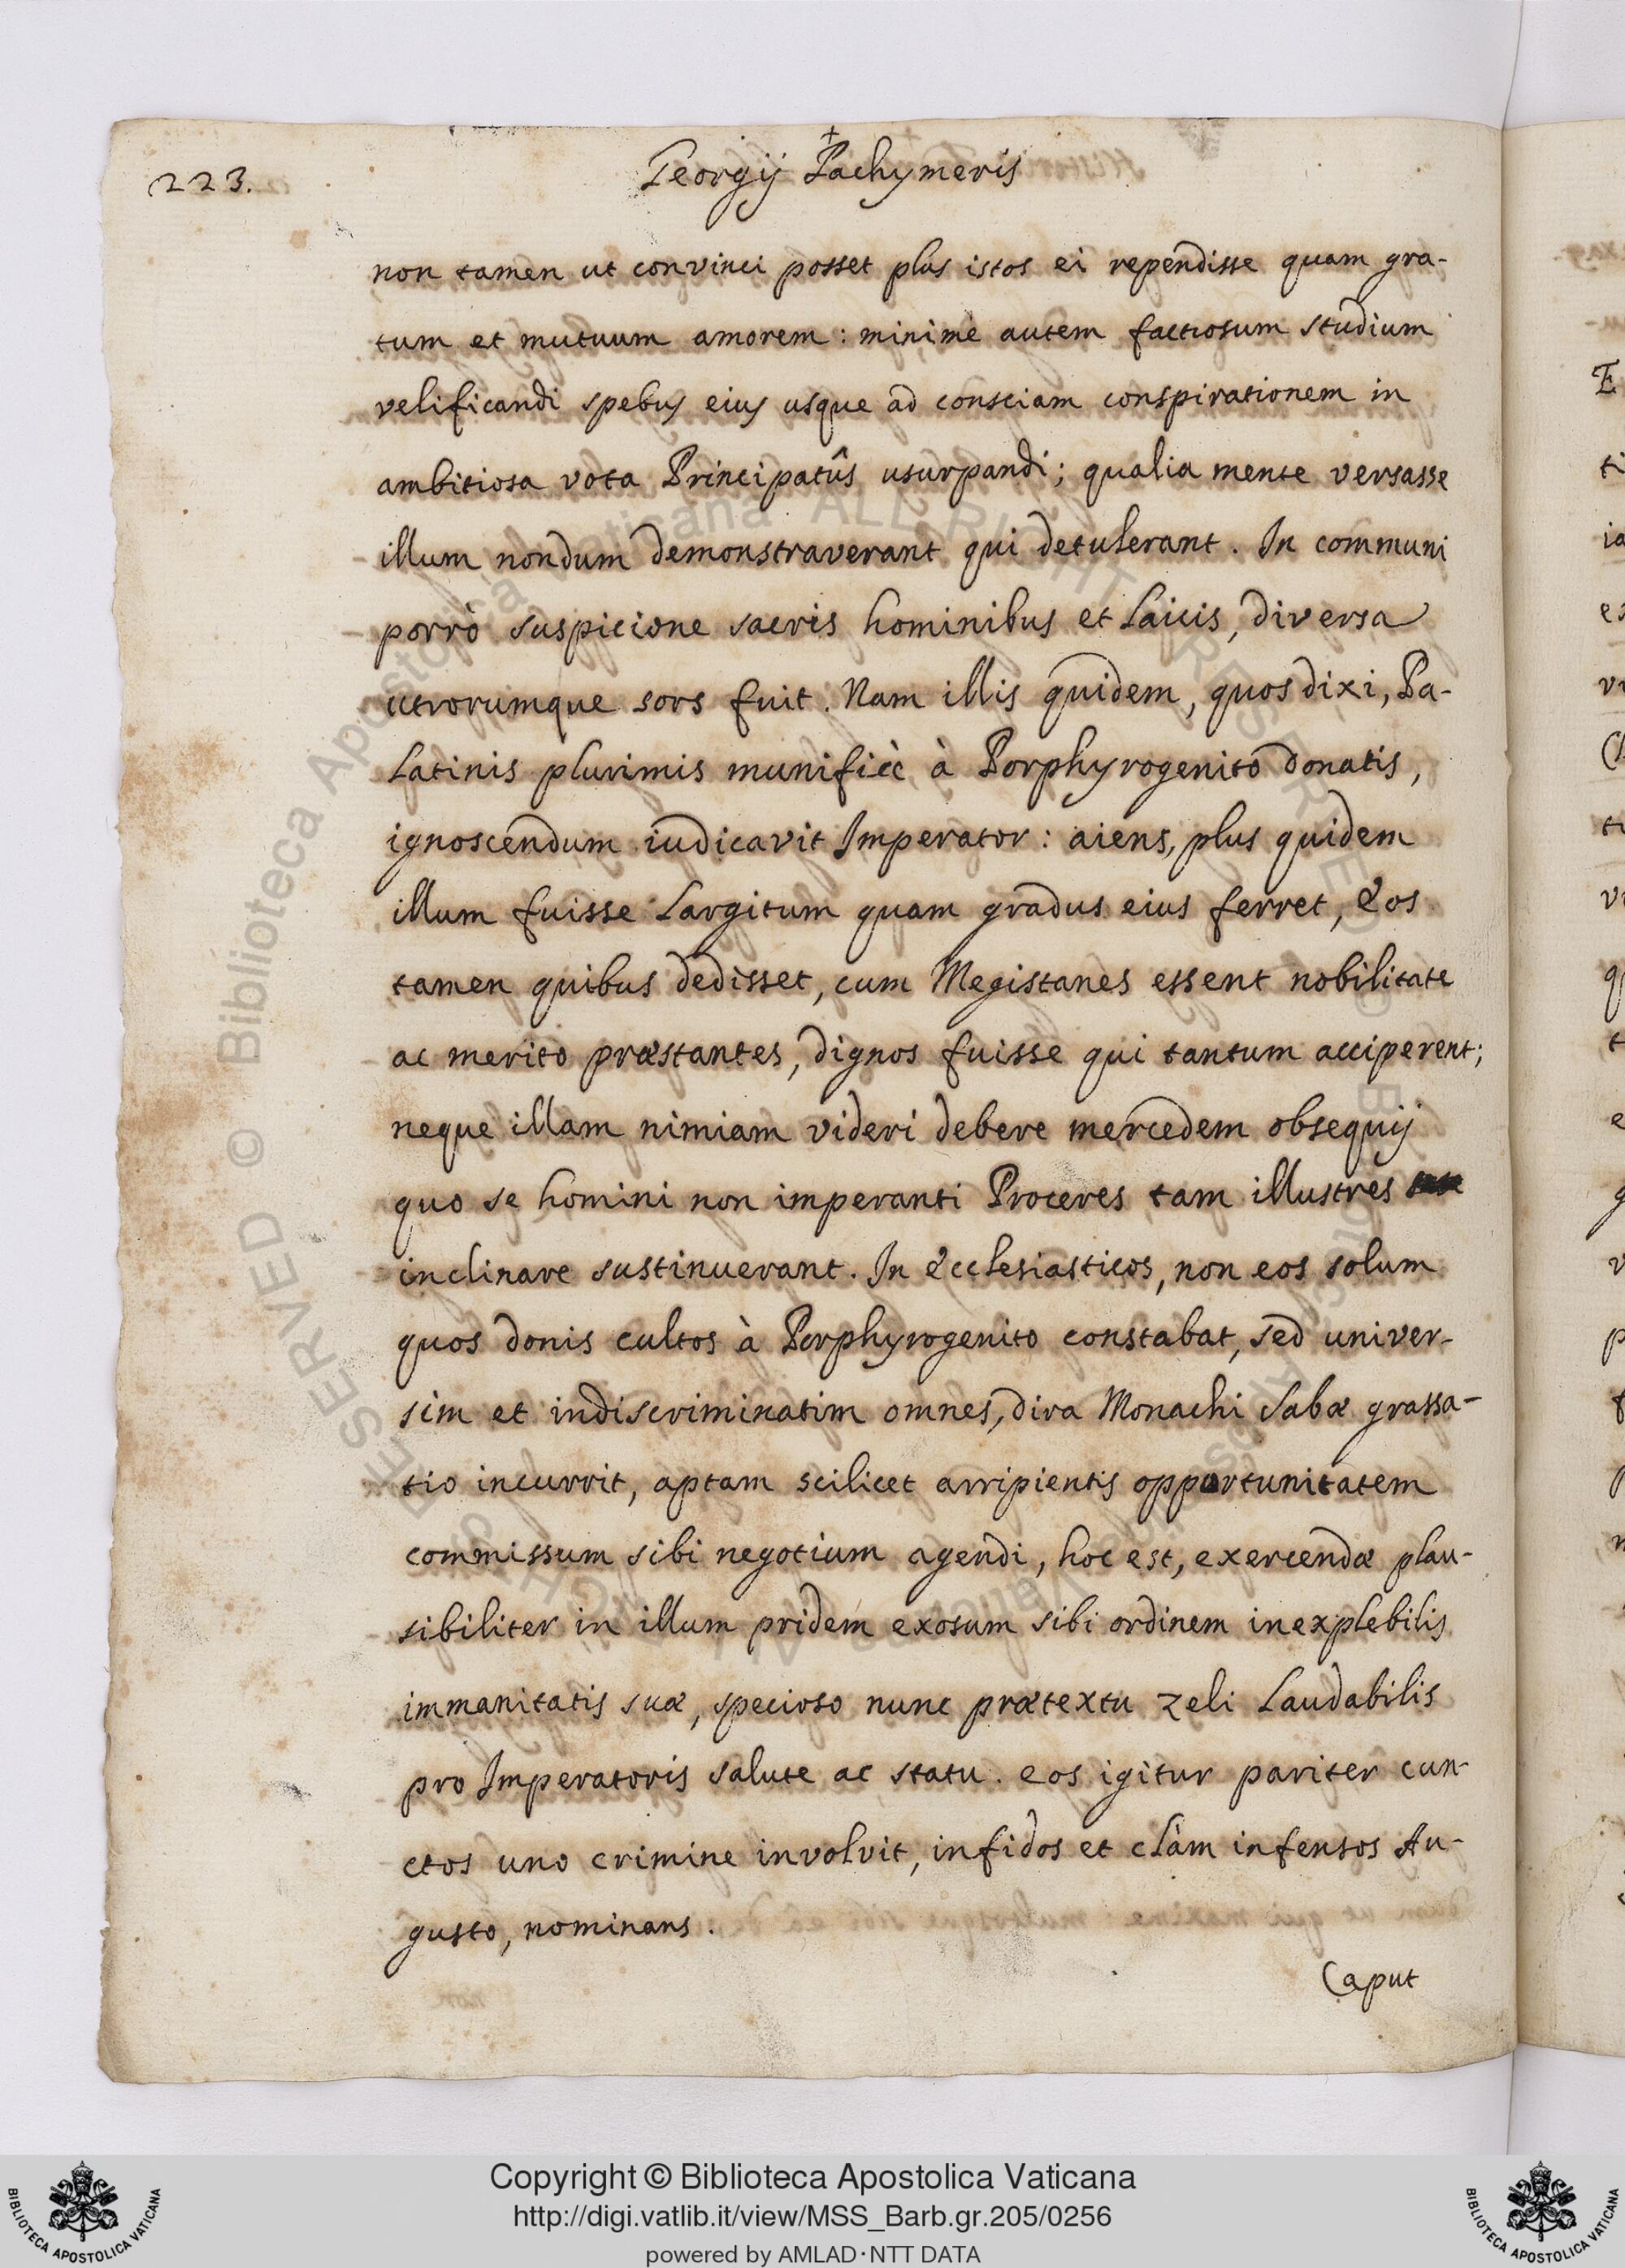 223.
Georgij Pachymeris
non tamen ut convinci posset plus istos ei rependisse quam gra-
tum et mutuum amorem : minimè autem factiosum studium
velificandi spebus eius usque ad consciam conspirationem in
ambitiosa vota Principatûs usurpandi; qualia mente versasse
illum nondum demonstraverant qui detulerant. In communi
porrò suspicione sacris hominibus et Laicis, diversa
utrorumque sors fuit. Nam illis quidem, quos dixi, Pa-
Latinis plurimis munificè à Porphyrogenito donatis,
ignoscendum iudicavit Imperator : aiens, plus quidem
illum fuisse Largitum quam gradus eius ferret, eos
tamen quibus dedisset, cum Megistanes essent nobilitate
ac merito præstantes, dignos fuisse qui tantum acciperent;
neque illam nimiam videri debere mercedem obsequij
quo se homini non imperanti Proceres tam illustres
inclinare sustinuerant. In Ecclesiasticos, non eos solum
quos donis cultos à Porphyrogenito constabat, sed univer-
sim et indiscriminatim omnes, dira Monachi Sabæ grassa-
tio incurrit, aptam scilicet arripientis opportunitatem
commissum sibi negotium agendi, hoc est, exercendæ plau-
sibiliter in illum pridem exosum sibi ordinem inexplebilis
immanitatis suæ, specioso nunc prætextu zeli Laudabilis
pro Imperatoris salute ac statu. eos igitur pariter cun-
ctos uno crimine involvit, infidos et clàm infensos Au-
gusto, nominans.
Caput
Copyright © Biblioteca Apostolica Vaticana
http://digi.vatlib.it/view/MSS_Barb.gr.205/0256
powered by AMLAD·NTT DATA
BIBLIOTECA APOSTOLICA VATICANA
BIBLIOTECA APOSTOLICA VATICANA